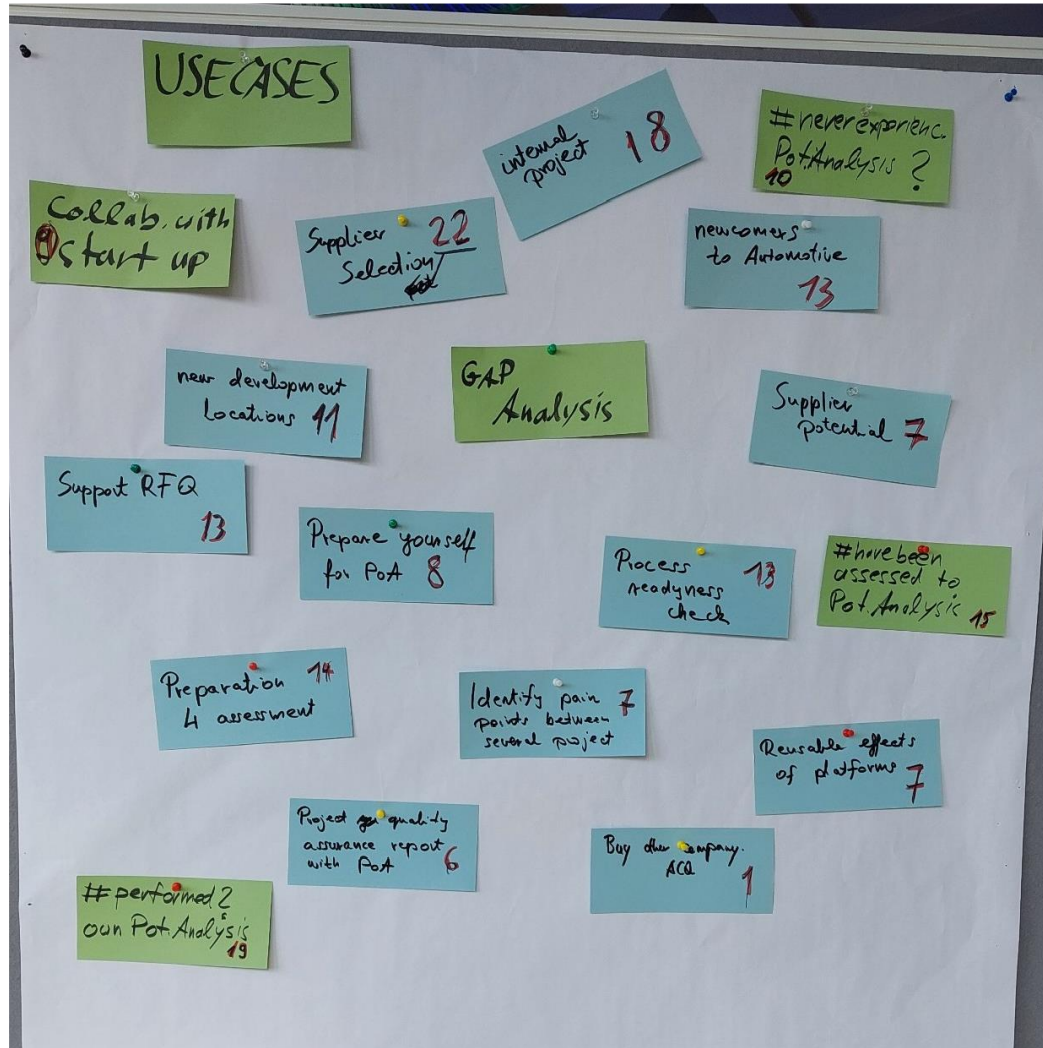 USECASES
internal
project 18
#neverexperienc.
Pot.Analysis ?
10
Collab. with
9 start up
Supplier 22
Selection
newcomers
to Automotive
13
new development
Locations 11
GAP
Analysis
Supplier
potential 7
Support RFQ
13
Prepare yourself
for PoA 8
Process 13
readyness
check
#have been
assessed to
Pot.Analysis 15
Preparation 14
4 assessment
Identify pain 7
points between
several project
Reusable effects
of platforms 7
Project quality
assurance report
with PoA 6
Buy other company.
ACQ 1
#performed 2
own Pot.Analysis
19